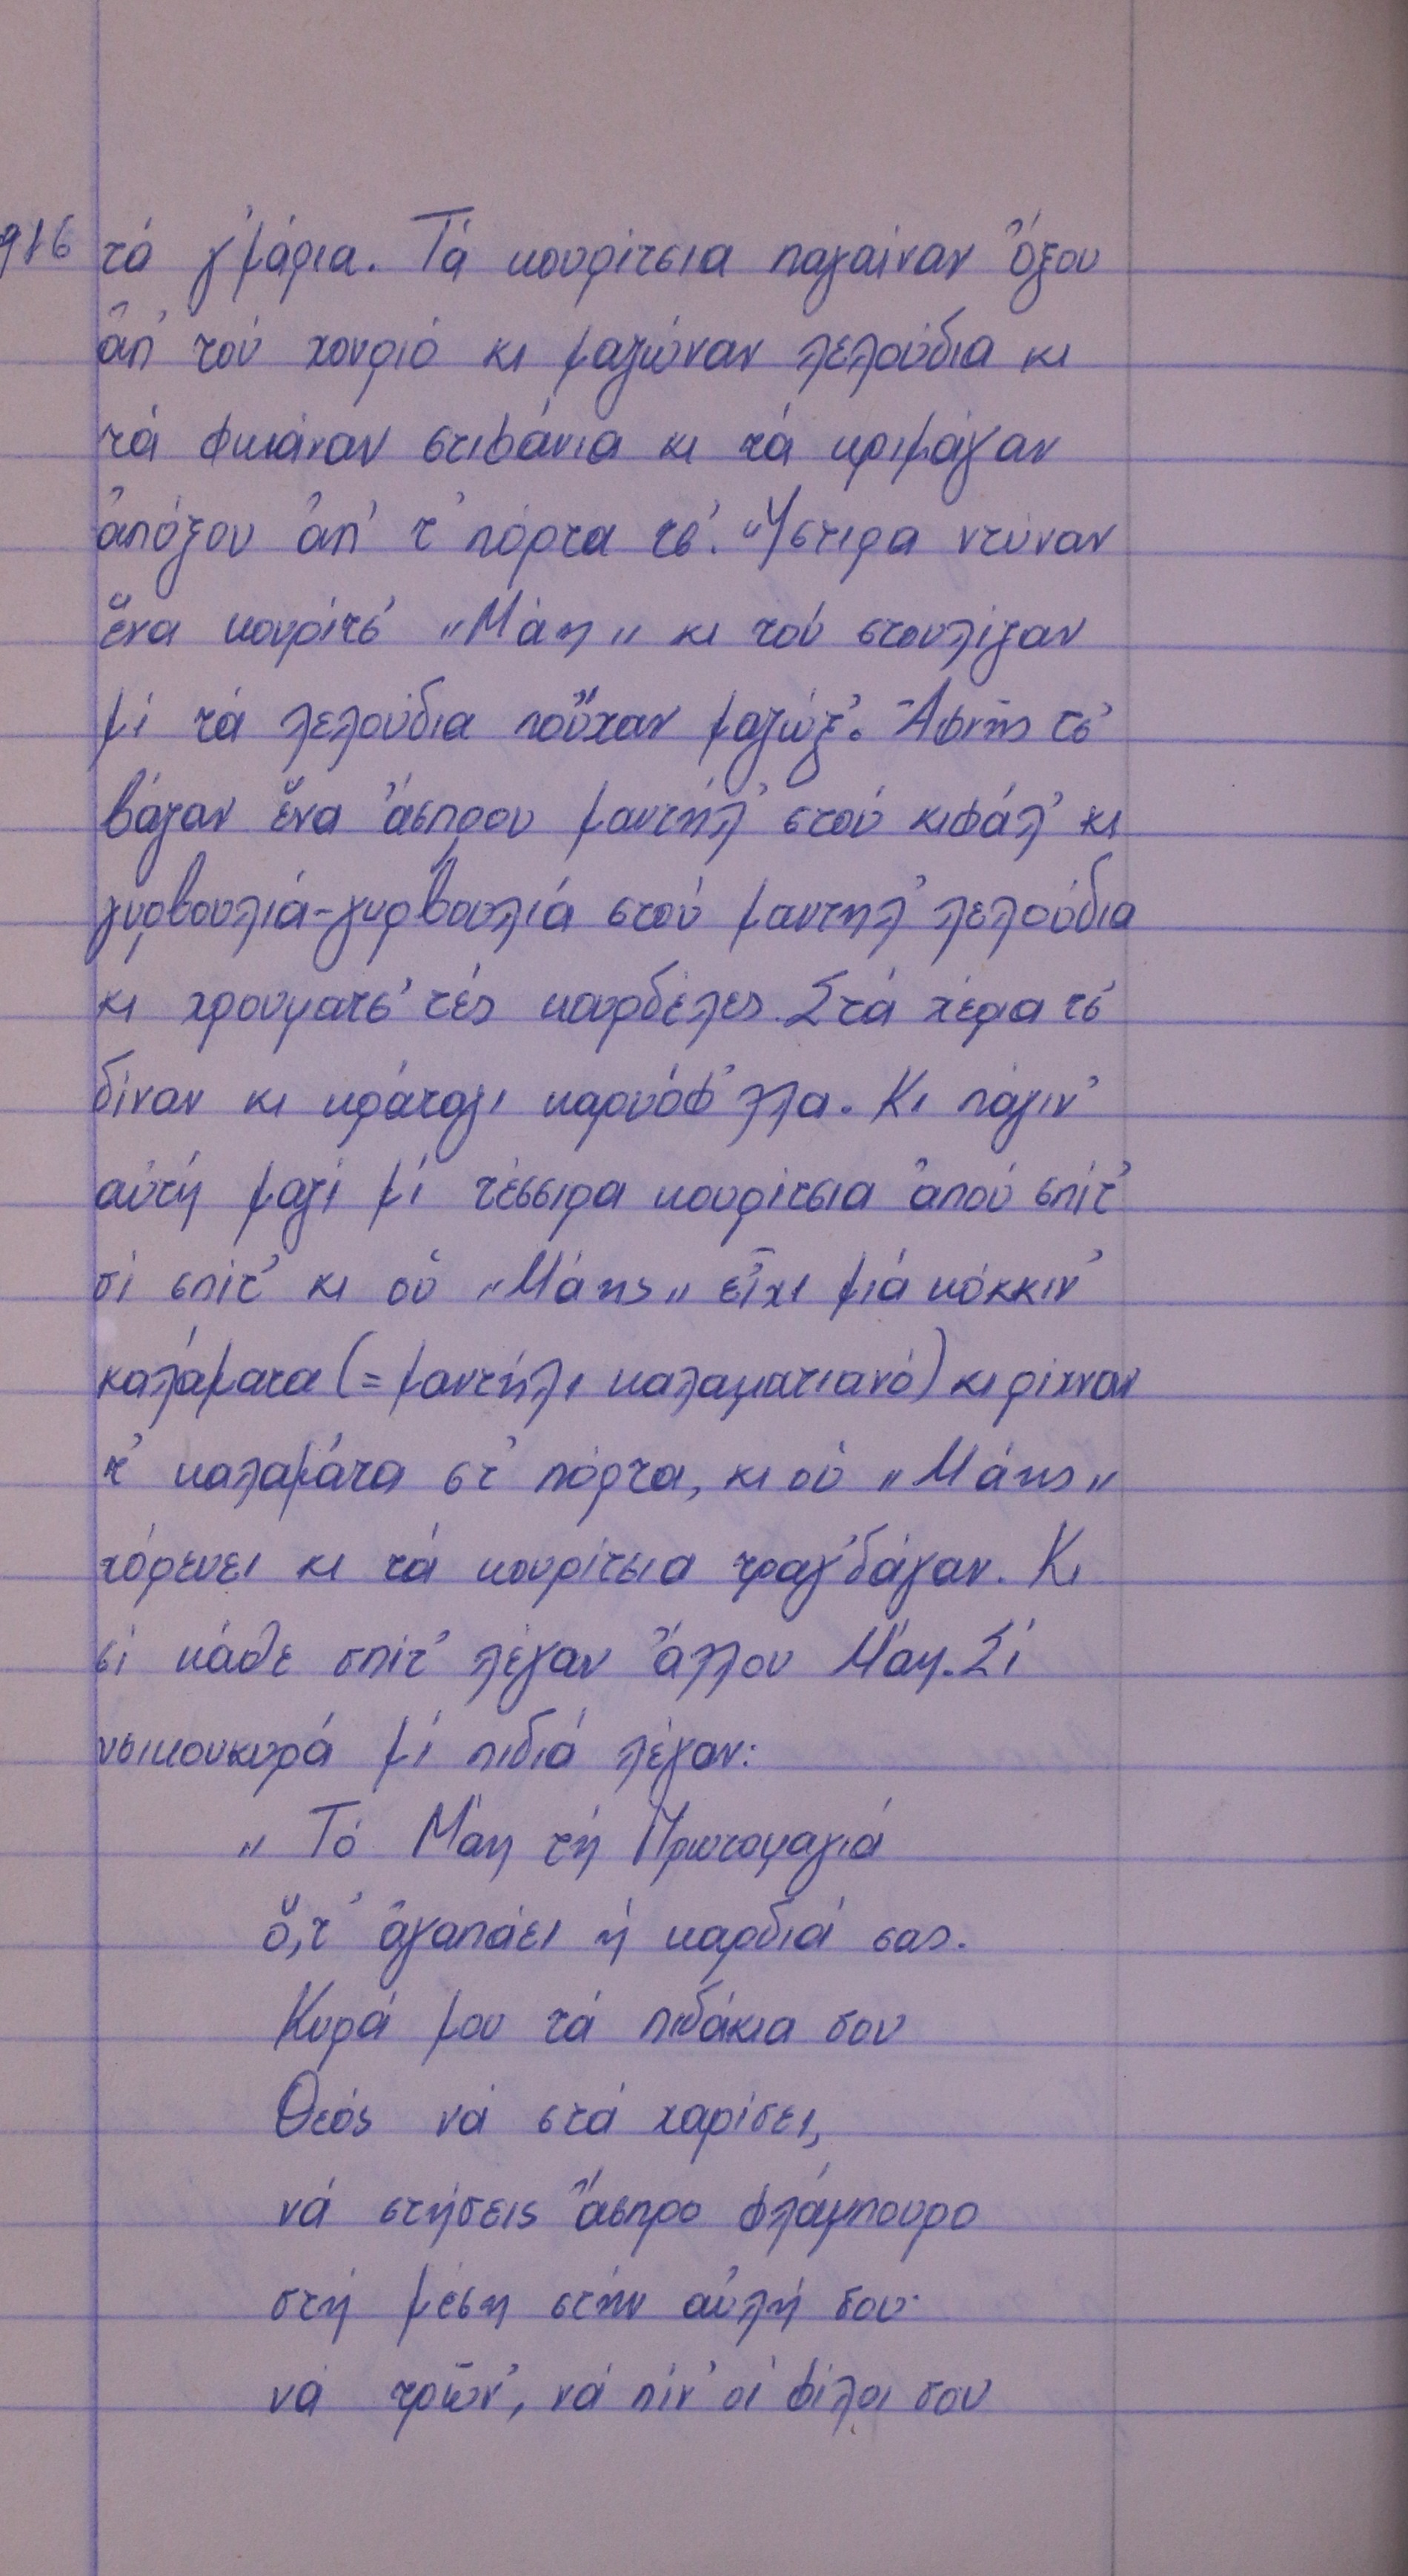 916 τά γ'μάρια. Τά κουρίτσια παγαίναν ὄξου
ἀπ' τοὐ χουριό κι μαζώναν λελούδια κι
τά φκιάναν στιφάνια κι τά κριμάγαν
ἀπόξου ἀπ' τ' πόρτα τσ'. Ὕστιρα ντύναν
ἕνα κουρίτσ' „Μάη„ κι τού στουλίζαν
μί τά λελούδια ποὔχαν μαζώξ'. Ἀφνῆς τσ'
βάζαν ἕνα ἄσπρου μαντήλ' στού κιφάλ' κι
γυρβουλιά-γυρβουλιά στού μαντηλ' λελούδια
κι χρουματσ'τές κουρδέλες. Στά χέρια τσ'
δίναν κι κράταγι καρυόφ'λλα. Κι πάγιν'
αὐτή μαζί μί τέσσιρα κουρίτσια ἀπού σπίτ'
σί σπίτ' κι οὑ „Μάης„ εἶχι μιά κόκκιν'
καλάματα (= μαντήλι καλαματιανό) κι ρίχναν
τ' καλαμάτα στ' πόρτα, κι οὑ „Μάης„
χόρευει κι τά κουρίτσια τραγ'δάγαν. Κι
σί κάθε σπίτ' λέγαν ἄλλου Μάη. Σί
νοικουκυρά μί πιδιά λέγαν:
„ Τό Μάη τή Πρωτομαγιά
ὅ,τ' ἀγαπάει ἡ καρδιά σας.
Κυρά μου τά πιδάκια σου
Θεός νά στά χαρίσει,
νά στήσεις ἄσπρο φλάμπουρο
στή μέση στήν αὐλή σου·
νά τρῶν', νά πίν' οἱ φίλοι σου